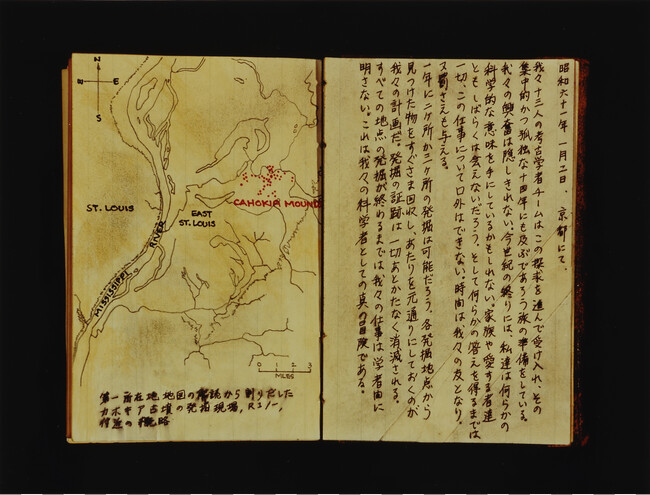 N
E
S
ST. LOUIS
EAST
ST. LOUIS
CAHOKIA MOUND
MISSISSIPPI RIVER
0 1 2 3
MILES
第一所在地地図の から割りだした
カホキア古墳の発掘現場,
付近の概略
昭和六十一年 一月二日、京都にて、
我々十三人の考古学者チームはこの探求を進んで受け入れ、その
集中的かつ孤独な十四年にも及ぶであろう旅の準備をしている。
我々の興奮は隠しきれない。今世紀の終りには、私達は何らかの
科学的な意味を手にしているかもしれない。家族や愛する者達
ともしばらくは会えないだろう、そして何らかの答えを得るまでは
一切、この仕事について口外はできない。時間は我々の友となり、
罰さえも与える。
一年に二ヶ所か三ヶ所の発掘は可能だろう。各発掘地点から
見つけた物をすぐさま回収し、あたりを元通りにしておくのが
我々の計画だ。発掘の証跡は一切あとかたなく消滅される。
すべての地点の発掘が終わるまでは、我々の仕事は学者間に
明さない。これは我々の科学者としての真の冒険である。